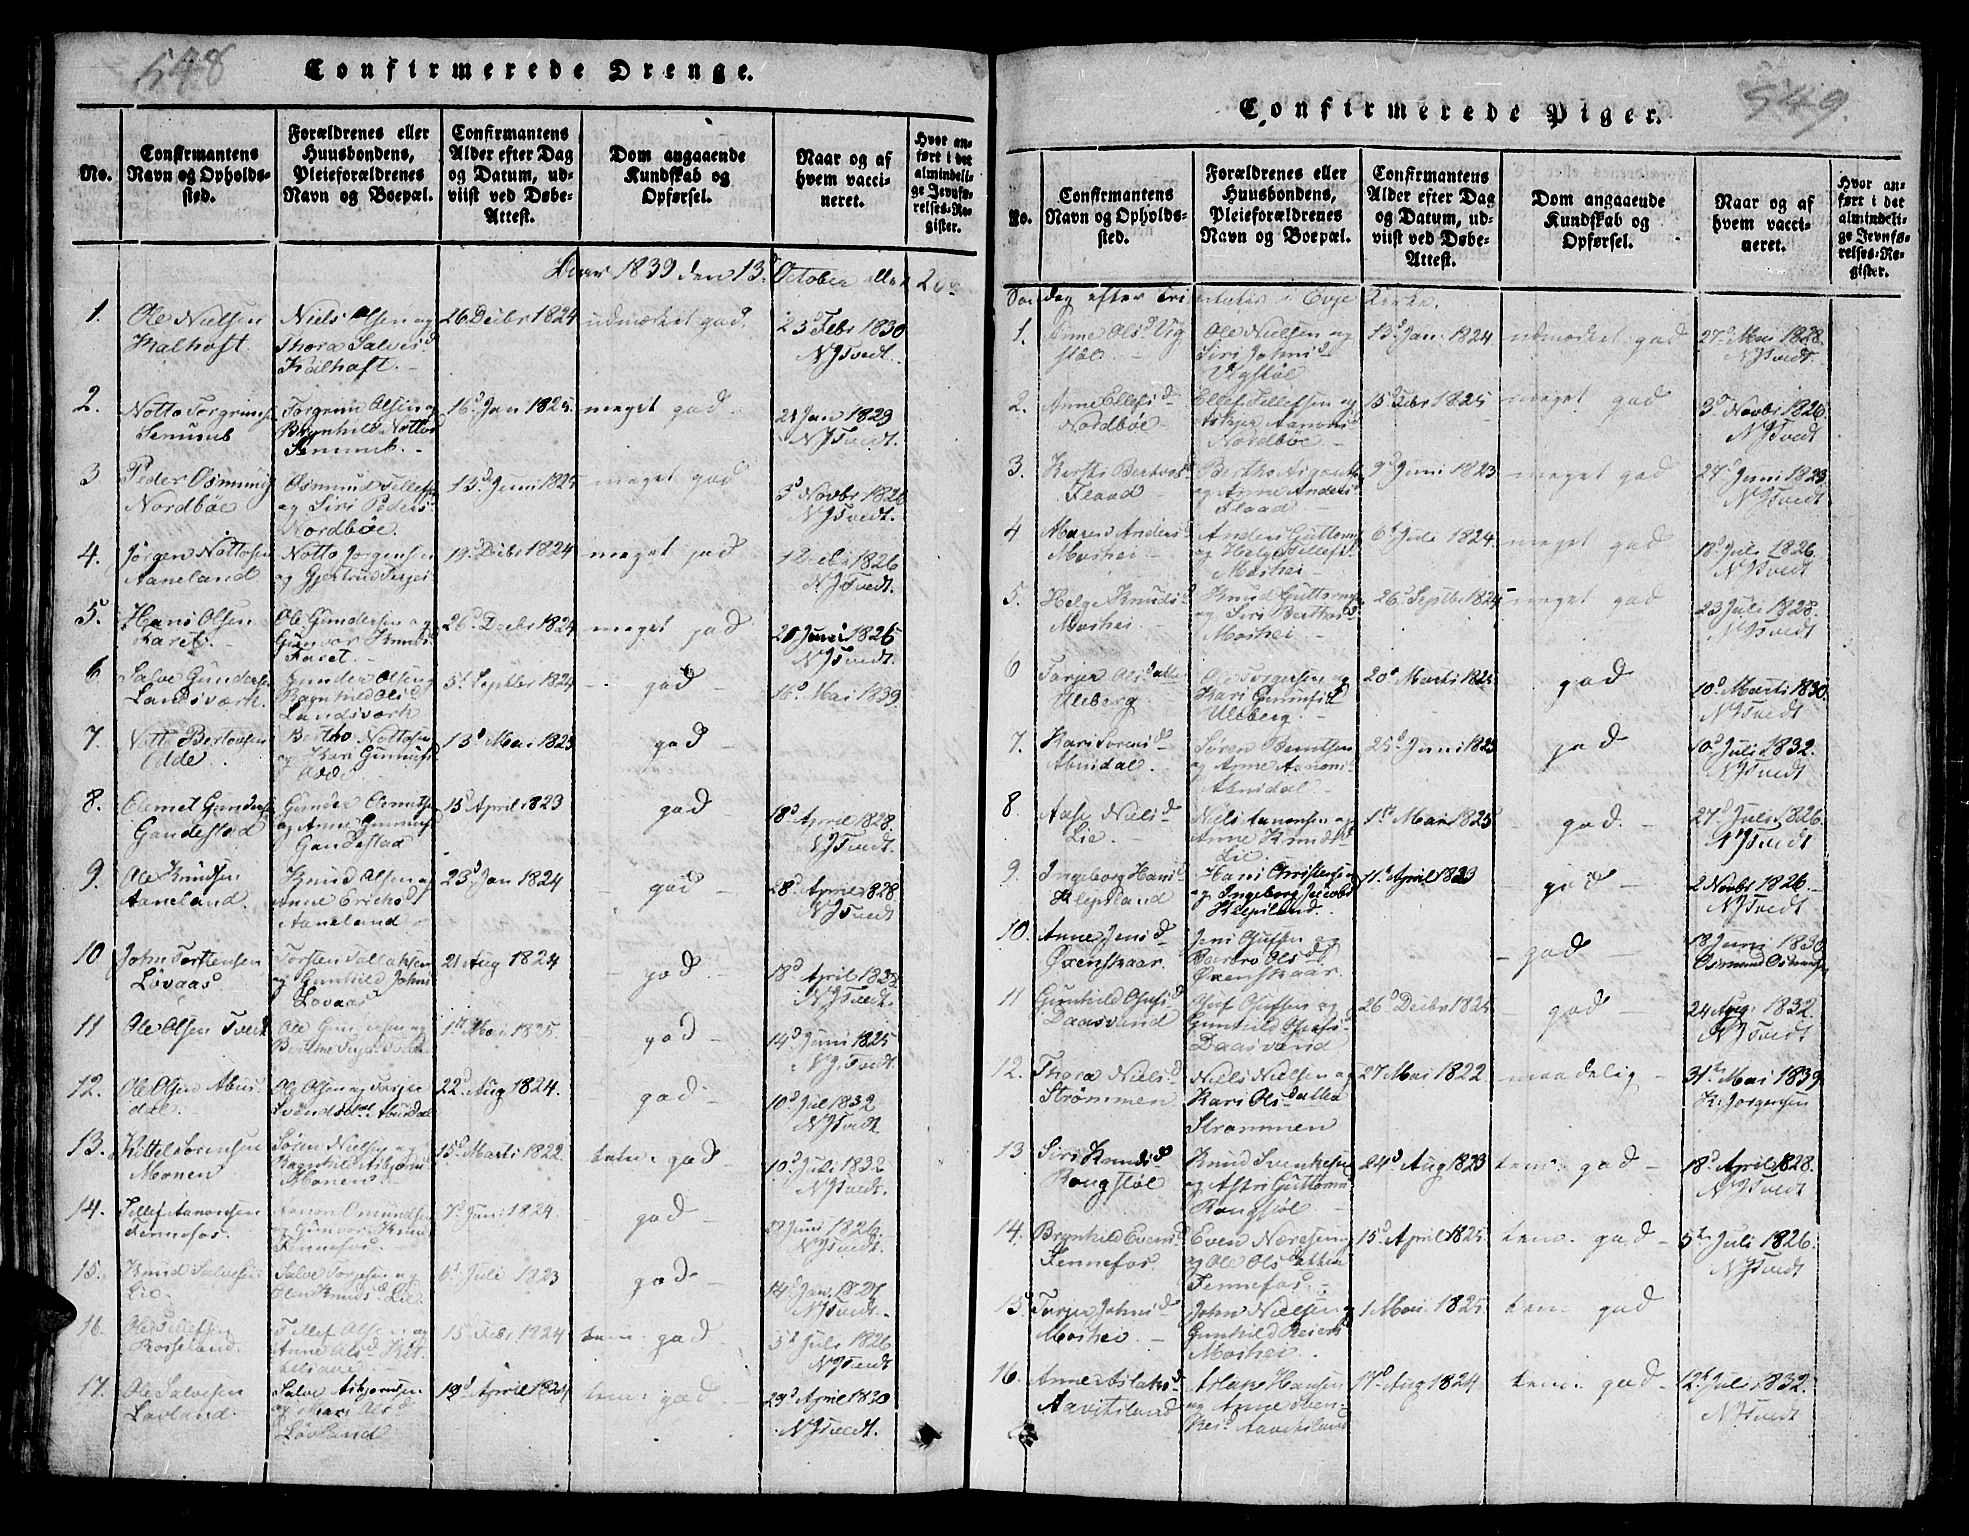 548
Confirmerede Drenge.
No.
Confirmantens
Navn og Opholds-
sted.
Forældrenes eller
Huusbondens,
Pleieforældrenes
Navn og Boepæl.
Confirmantens
Alder efter Dag
og Datum, ud-
viist ved Døbe-
Attest.
Dom angaaende
Kundskab og
Opførsel.
Naar og af
hvem vacci-
neret.
Hvor an-
ført i det
almindeli-
ge Jevnfø-
relses-Re-
gister.
Aar 1839 den 13de October eller 20de
1. Ole Nielsen
Kalhoft
Niels Olsen og
Thora Salves d
Kalhoft.
26 Decbr 1824
udmærket god.
23d Febr 1830
NJTvedt.
2. Notto Torgrims
Senumb
Torgrim Olsen og
Brynhild Nottos
Senumb.
16d Jan 1825.
meget god.
21 Jan 1829
NJTvedt.
3 Peder Osmunds
Nordbøe
Osmund Tellefs
og Siri Peders
Nordbøe.
13d Juni 1825
meget god
5d Novbr 1826
NJTvedt.
4. Jørgen Nottosen
Aaneland
Notto Jørgensen
og Gjertrud Terjes
19d Decbr 1824
meget god
1 Decbr 1826
NJTvedt.
5. Hans Olsen
Faret.
Ole Gundersen og
Gunvor Knuds
Faret.
26d Decbr 1824
meget god
20 Juni 1826
NJTvedt.
6 Salve Gunders
Landsværk.
Gunder Olsen og
Ragnhild Olsd
Landsværk
5d Septbr 1824
god
16d Mai 1839
7. Notto Bertousen
Odde.
Bertho Nottosen
og Kari Gunnufs
Odde
13d Mai 1825
god
8. Oemet Gunders
Gandestad
Gunder Oemets
og Anne Gunnufs
Gandestad
15d April 1823
god
18d April 1828.
NJTvedt.
9. Ole Knudsen
Aaneland.
Knud Olsen og
Anne Erichsd
Aaneland
23d Jan 1824
god
28d April 1828.
NJTvedt
10 John Torstensen
Løvaas
Torsten Tallaksen
og Gunhild Johns
Løvaas
21 Aug 1824
god.
18d April 1838.
NJTvedt.
11 Ole Olsen Tvedt
Ole Gundersen og
1ste Mai 1825
god
14d Juni 1825
NJTvedt.
12. Ole Olsen Abus
dal.
Ole Olsen og Torjer
Svendsdal. Abusdal
22d Aug 1824.
god
10d Juli 1832
NJTvedt
13. Kittel Sørensen
Monen
Søren Nielsen og
Ragnhild Asbjørns
Monen
15d Marts 1822.
tem. god
10d Juli 1832
NJTvedt.
14. Tellef Aanonsen
Fennefos.
Aanon Omundsen
og Gunvor Knuds
Fennefos.
7d Juni 1824.
god
28 Juni 1826.
NJTvedt.
15. Knud Salvesen
Lie
Salve Torjesen og
Olen Knudsd Lie.
6d Juli 1823
god
14d Jan. 1827
NJTvedt.
16. Ole Tellefsen
Rosseland.
Tellef Olsen og
Anne Olsd Kit
15 Febr 1824
tem. god
5d Juli 1826
NJTvedt.
17. Ole Salvesen
Løvland.
Salve Asbjørnsen
og Mari Olsd
Løvland
19d April 1824
tem. god.
29d April 1830
NJTvedt.
549.
Confirmerede Piger.
No.
Confirmantens
Navn og Opholds-
sted.
Forældrenes eller
Huusbondens,
Pleieforældrenes
Navn og Boepæl.
Confirmantens
Alder efter Dag
og Datum, ud-
viist ved Døbe-
Attest.
Dom angaaende
Kundskab og
Opførsel.
Naar og af
hvem vacci-
neret.
Hvor an-
ført i det
almindeli-
ge Jevnfø-
relses-Re-
gister.
Søndag efter Trinitatis i Evje Kirke.
1. Anne Olsd Vig
støl
Ole Nielsen og
Siri Johnsd
Vigstøl
13d Jan. 1824
udmærket god
27d Mai 1828.
NJTvedt.
2. Anne Ellefsd
Nordbøe
Ellef Tellefsen og
Askjer Aanons
Nordbøe
15 Febr 1825
meget god
3d Novbr 1826
NJTvedt.
3. Kersti Bertous
Flaad
og Anne Anders
Flaad
9d Juni 1823
meget god
27d Juni 1829
NJTvedt.
4 Maren Anders
Moshei
Anders Guttorms
og Helge Tellefsd
Moshei
6d Juli 1824
meget god
18d Juli 1826.
NJTvedt
5. Helge Knudsd
Moshei
Knud Guttorms
og Siri Berthosd
Moshei
26d Septbr 1824
meget god
23 Juli 1828.
NJTvedt.
6 Torjer Olsdatter
Uleberg
Ole Torgersen og
Kari Gunnufsd
Uleberg
20d Marts 1825
god
10d Marts 1830.
NJTvedt
7. Kari Sørensd
Abusdal.
Søren Berntsen
og Anne Aanons
Abusdal
25d Juni 1823
god
10d Juli 1832.
NJTvedt
8 Aase Nielsd
Lie.
Niels Aanonsen og
Anne Knudsd
Lie.
1ste Mai 1825
god.
27d Juli 1826.
NJTvedt.
9 Ingeborg Hansd
Klepsland
Hans Christensen
og Ingeborg Jacobsd
Klepsland.
11te April 1823
god
2 Novbr 1826.
NJTvedt
10. Anne Jensd
Øxenskaar.
Jens Olufsen og
Barbro Olsd
Øxenskaar.
god
18 Juni 1830
Osmund Osmunds
11 Gunhild Olufsd
Daasvand
Oluf Olufsen og
Gunhild Olufs
Daasvand
26d Decbr 1824
god
24 Aug: 1832.
NJTvedt
12. Thora Nielsd
Strømmen
Niels Nielsen og
Kari Olsdatter
Strømmen
27 Mai 1822.
maadelig
31te Mai 1839
K. Jørgensen
13 Siri Knudsd
Rongstøl
Knud Svenkesen
og Astri Guttorms
Rongstøl
24d Aug 1823
tem. god
18d April 1828.
NJTvedt
14. Brynhild Evensd
Fennefos.
Even Næresen
og Ole Olsdatter
Fennefos.
15d April 1825.
tem. god
5te Juli 1826.
NJTvedt.
15 Torjer Johnsd
Moshei.
John Nielsen og
Gunhild Reiers
Moshei
1 Mai 1825
tem. god
16. Anne Aslaksd
Aavitsland
Aslak Hansen
og Anne Sven-
kesd Aavitsland
17d Aug 1824
tem. god
12te Juli 1832.
NJTvedt.